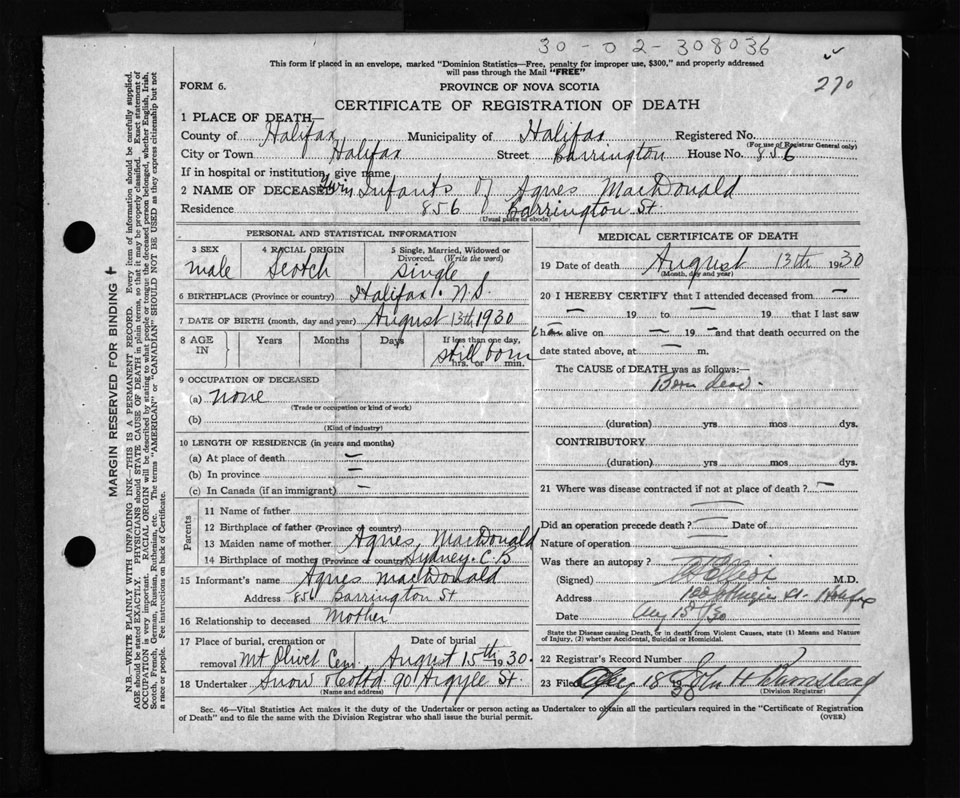 30-02-308036
This form if placed in an envelope, marked "Dominion Statistics—Free, penalty for improper use, $300," and properly addressed
will pass through the Mail "FREE"
270
FORM 6.
PROVINCE OF NOVA SCOTIA
CERTIFICATE OF REGISTRATION OF DEATH
1 PLACE OF DEATH—
County of Halifax Municipality of Halifax Registered No.
(For use of Registrar General only)
City or Town Halifax Street Barrington House No. 856
If in hospital or institution, give name
2 NAME OF DECEASED Twin Infants of Agnes MacDonald
Residence 856 Barrington St
(Usual place of abode)
PERSONAL AND STATISTICAL INFORMATION
3 SEX male
4 RACIAL ORIGIN Scotch
5 Single, Married, Widowed or Divorced. (Write the word) single
6 BIRTHPLACE (Province or country) Halifax. N.S.
7 DATE OF BIRTH (month, day and year) August 13th 1930
8 AGE IN Years Months Days If less than one day, hrs. or min. still born
9 OCCUPATION OF DECEASED
(a) none
(Trade or occupation or kind of work)
(b)
(Kind of industry)
10 LENGTH OF RESIDENCE (in years and months)
(a) At place of death —
(b) In province —
(c) In Canada (if an immigrant) —
Parents
11 Name of father
12 Birthplace of father (Province or country)
13 Maiden name of mother Agnes MacDonald
14 Birthplace of mother (Province or country) Sydney. C.B
15 Informant's name Agnes MacDonald
Address 856 Barrington St
16 Relationship to deceased Mother
17 Place of burial, cremation or removal Mt Olivet Cem. Date of burial August 15th 1930.
18 Undertaker Snow & Co Ltd 90 Argyle St.
(Name and address)
MEDICAL CERTIFICATE OF DEATH
19 Date of death August 13th 1930
(Month, day and year)
20 I HEREBY CERTIFY that I attended deceased from —
— 19 to — 19 that I last saw
h alive on — 19 — and that death occurred on the
date stated above, at — m.
The CAUSE OF DEATH was as follows:—
Born dead.
(duration) yrs mos dys.
CONTRIBUTORY
(duration) yrs mos dys.
21 Where was disease contracted if not at place of death? —
Did an operation precede death? — Date of
Nature of operation —
Was there an autopsy? —
(Signed) M.D.
Address Halifax
Date Aug 15th/30
State the Disease causing Death, or in death from Violent Causes, state (1) Means and Nature of Injury, (2) whether Accidental, Suicidal or Homicidal.
22 Registrar's Record Number
23 Filed Aug 18 1930 John H
(Division Registrar)
Sec. 46—Vital Statistics Act makes it the duty of the Undertaker or person acting as Undertaker to obtain all the particulars required in the "Certificate of Registration
of Death" and to file the same with the Division Registrar who shall issue the burial permit.
(OVER)
MARGIN RESERVED FOR BINDING
N.B.—WRITE PLAINLY WITH UNFADING INK—THIS IS A PERMANENT RECORD. Every item of information should be carefully supplied.
AGE should be stated EXACTLY. PHYSICIANS should STATE CAUSE OF DEATH in plain terms, so that it may be properly classified. Exact statement of
OCCUPATION is very important. RACIAL ORIGIN will be described by stating to what people or tongue the deceased person belonged, whether English, Irish,
Scotch, French, German, Russian, Ruthenian, etc. The terms "AMERICAN" or "CANADIAN" SHOULD NOT BE USED as they express citizenship but not
a race or people. Fee instructions on back of Certificate.